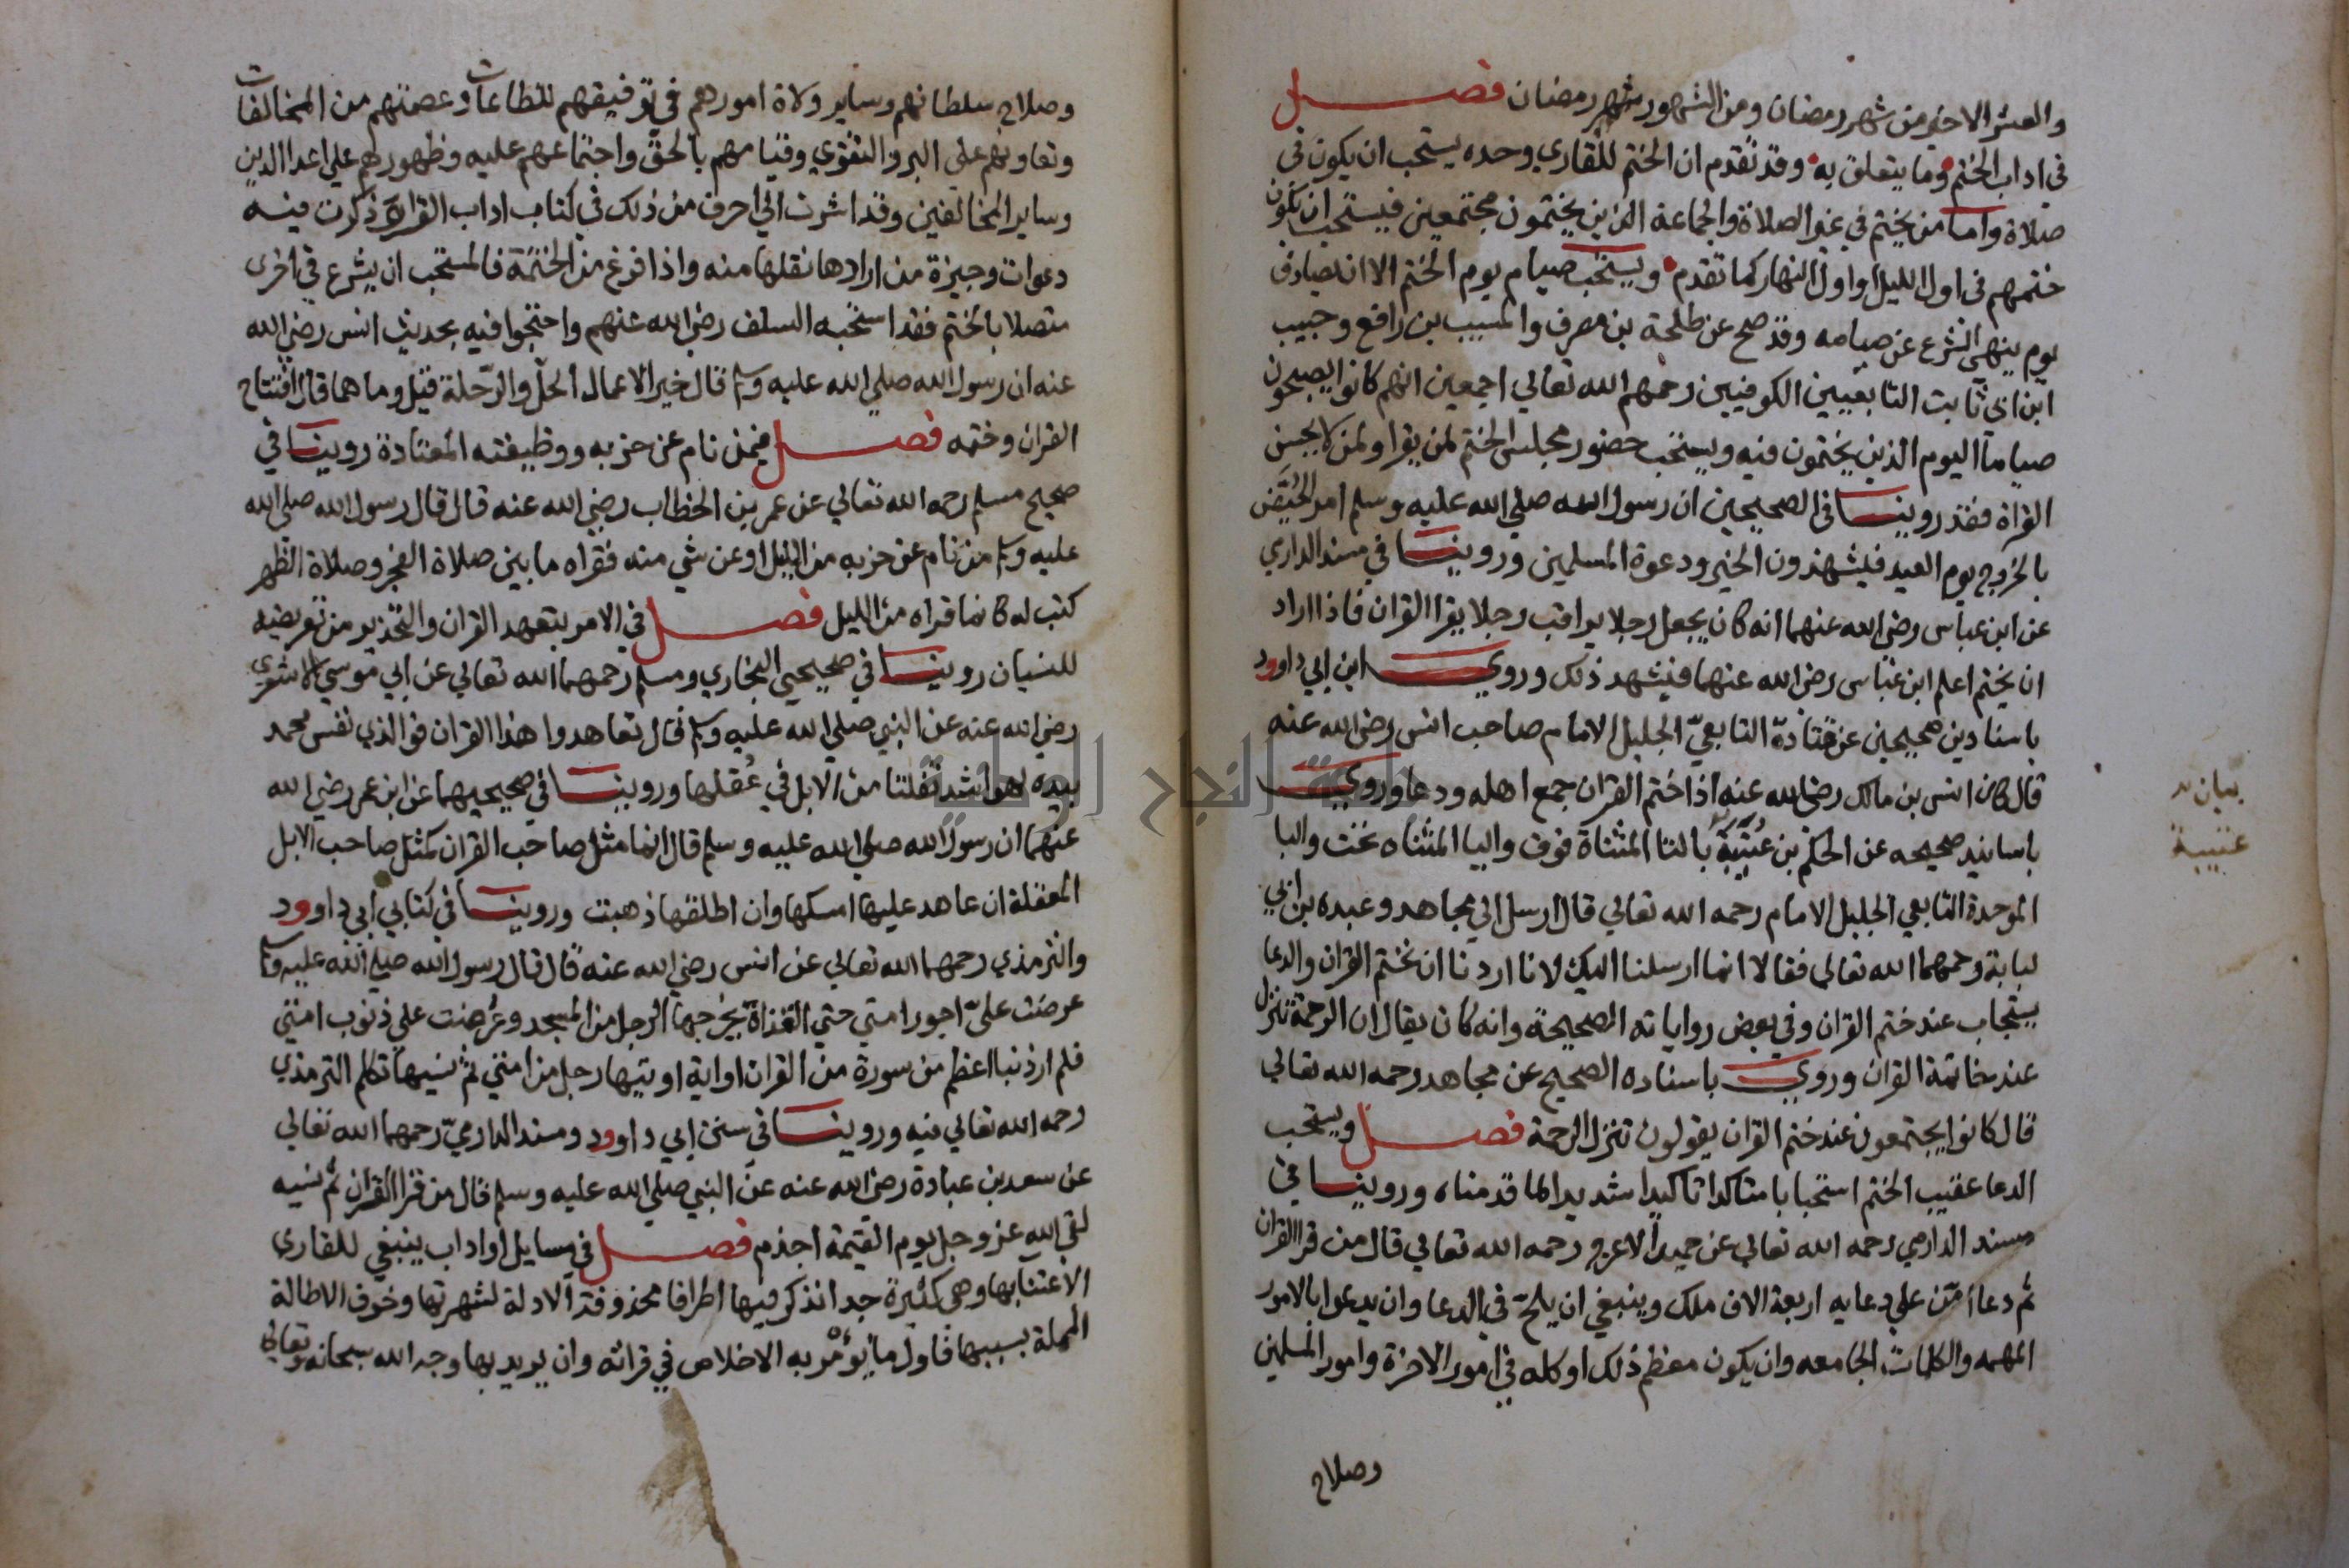 والعشر الاخير من شهر رمضان ومن الشهور شهر رمضان فصل
في اداب الختم وما يتعلق به وقد تقدم ان الختم للقاري وحده يستحب ان يكون في
صلاة واما من يختم في غير الصلاة والجماعة الذين يختمون مجتمعين فيستحب ان يكون
ختمهم في اول الليل او اول النهار كما تقدم ويستحب صيام يوم الختم الا ان يصادف
يوم ينهي الشرع عن صيامه وقد صح عن طلحة بن مصرف والمسيب بن رافع وحبيب
ابن ابي ثابت التابعيين الكوفيين رحمهم الله تعالي اجمعين انهم كانوا يصبحون
صياما اليوم الذين يختمون فيه ويستحب حضور مجلس الختم لمن يقرا ولمن لا يحسن
القراة فقد روينا في الصحيحين ان رسول الله صلي الله عليه وسلم امر الحُيَّض
بالخروج يوم العيد فيشهدون الخير ودعوة المسلمين وروينا في مسند الدارمي
عن ابن عباس رضي الله عنهما انه كان يجعل رجلا يراقب رجلا يقرا القران فاذا اراد
ان يختم اعلم ابن عباس رضي الله عنهما فيشهد ذلك وروي ابن ابي داوود
باسنادين صحيحين عن قتادة التابعيّ الجليل الامام صاحب انس رضي الله عنه
قال كان انس بن مالك رضي الله عنه اذا ختم القران جمع اهله ودعا وروي
باسانيد صحيحه عن الحكم بن عُتَيْبَة بالتا المثناة فوق واليا المثناه تحت والبا
الموحدة التابعي الجليل الامام رحمه الله تعالي قال ارسل الي مجاهد وعبده بن ابي
لبابة رحمهما الله تعالي فقالا انما ارسلنا اليك لانا اردنا ان نختم القران والدعا
يستجاب عند ختم القران وفي بعض رواياته الصحيحة وانه كان يقال ان الرحمة تنزل
عند خاتمة القران وروي باسناده الصحيح عن مجاهد رحمه الله تعالي
قال كانوا يجتمعون عند ختم القران يقولون تنزل الرحمة فصل ويستحب
الدعا عقيب الختم استحبابا متاكدا تاكيدا شديدا لما قدمناه وروينا في
مسند الدارمي رحمه الله تعالي عن حميد الاعرج رحمه الله تعالي قال من قرا القران
ثم دعا امّن علي دعايه اربعة الاف ملك وينبغي ان يلحّ في الدعا وان يدعوا بالامور
المهمه والكلمات الجامعه وان يكون معظم ذلك او كله في امور الاخرة وامور المسلمين
وصلاح
بيان
عتيبة
وصلاح سلطانهم وساير ولاة امورهم في توفيقهم للطاعات وعصمتهم من المخالفات
وتعاونهم علي البر والتقوي وقيامهم بالحق واجتماعهم عليه وظهورهم علي اعدا الدين
وساير المخالفين وقد اشرت الي احرف من ذلك في كتاب اداب القراة وذكرت فيه
دعوات وجيزة من ارادها نقلها منه واذا فرغ من الختمة فالمستحب ان يشرع في اخري
متصلا بالختم فقد استحبه السلف رضي الله عنهم واحتجوا فيه بحديث انس رضي الله
عنه ان رسول الله صلي الله عليه وسلم قال خير الاعمال الحلّ والرّحلة قيل وما هما قال افتتاح
القران وختمه فصل فيمن نام عن حزبه ووظيفته المعتادة روينا في
صحيح مسلم رحمه الله تعالي عن عمر بن الخطاب رضي الله عنه قال قال رسول الله صلي الله
عليه وسلم من نام عن حزبه من الليل او عن شي منه فقراه ما بين صلاة الفجر وصلاة الظهر
كتب له كانما قراه من الليل فصل في الامر بتعهد القران والتحذير من تعريضه
للنسيان روينا في صحيحي البخاري ومسلم رحمهما الله تعالي عن ابي موسي الاشعري
رضي الله عنه عن النبي صلي الله عليه وسلم قال تعاهدوا هذا القران فو الذي نفس محمد
بيده لهو اشد تفلتا من الابل في عُقلها وروينا في صحيحيهما عن ابن عمر رضي الله
عنهما ان رسول الله صلي الله عليه وسلم قال انما مثل صاحب القران كمثل صاحب الابل
المعقلة ان عاهد عليها امسكها وان اطلقها ذهبت وروينا في كتابي ابي داوود
والترمذي رحمهما الله تعالي عن انس رضي الله عنه قال قال رسول الله صلي الله عليه وسلم
عرضت عليّ اجور امتي حتي القذاة يخرجها الرجل من المسجد وعُرضت علي ذنوب امتي
فلم ار ذنبا اعظم من سورة من القران او اية اوتيها رجل من امتي ثم نسيها تكلم الترمذي
رحمه الله تعالي فيه وروينا في سنن ابي داوود ومسند الدارميّ رحمهما الله تعالي
عن سعد بن عبادة رضي الله عنه عن النبي صلي الله عليه وسلم قال من قرا القران ثم نسيه
لقي الله عز وجل يوم القيمة اجذم فصل في مسايل اواداب ينبغي للقاري
الاعتنا بها وهي كثيرة جدا نذكر فيها اطرافا محذوفة الادلة لشهرتها وخوف الاطالة
المملة بسببها فاول ما يؤمر به الاخلاص في قرائه وان يريد بها وجه الله سبحانه وتعالي
جامعة النجاح الوطنية